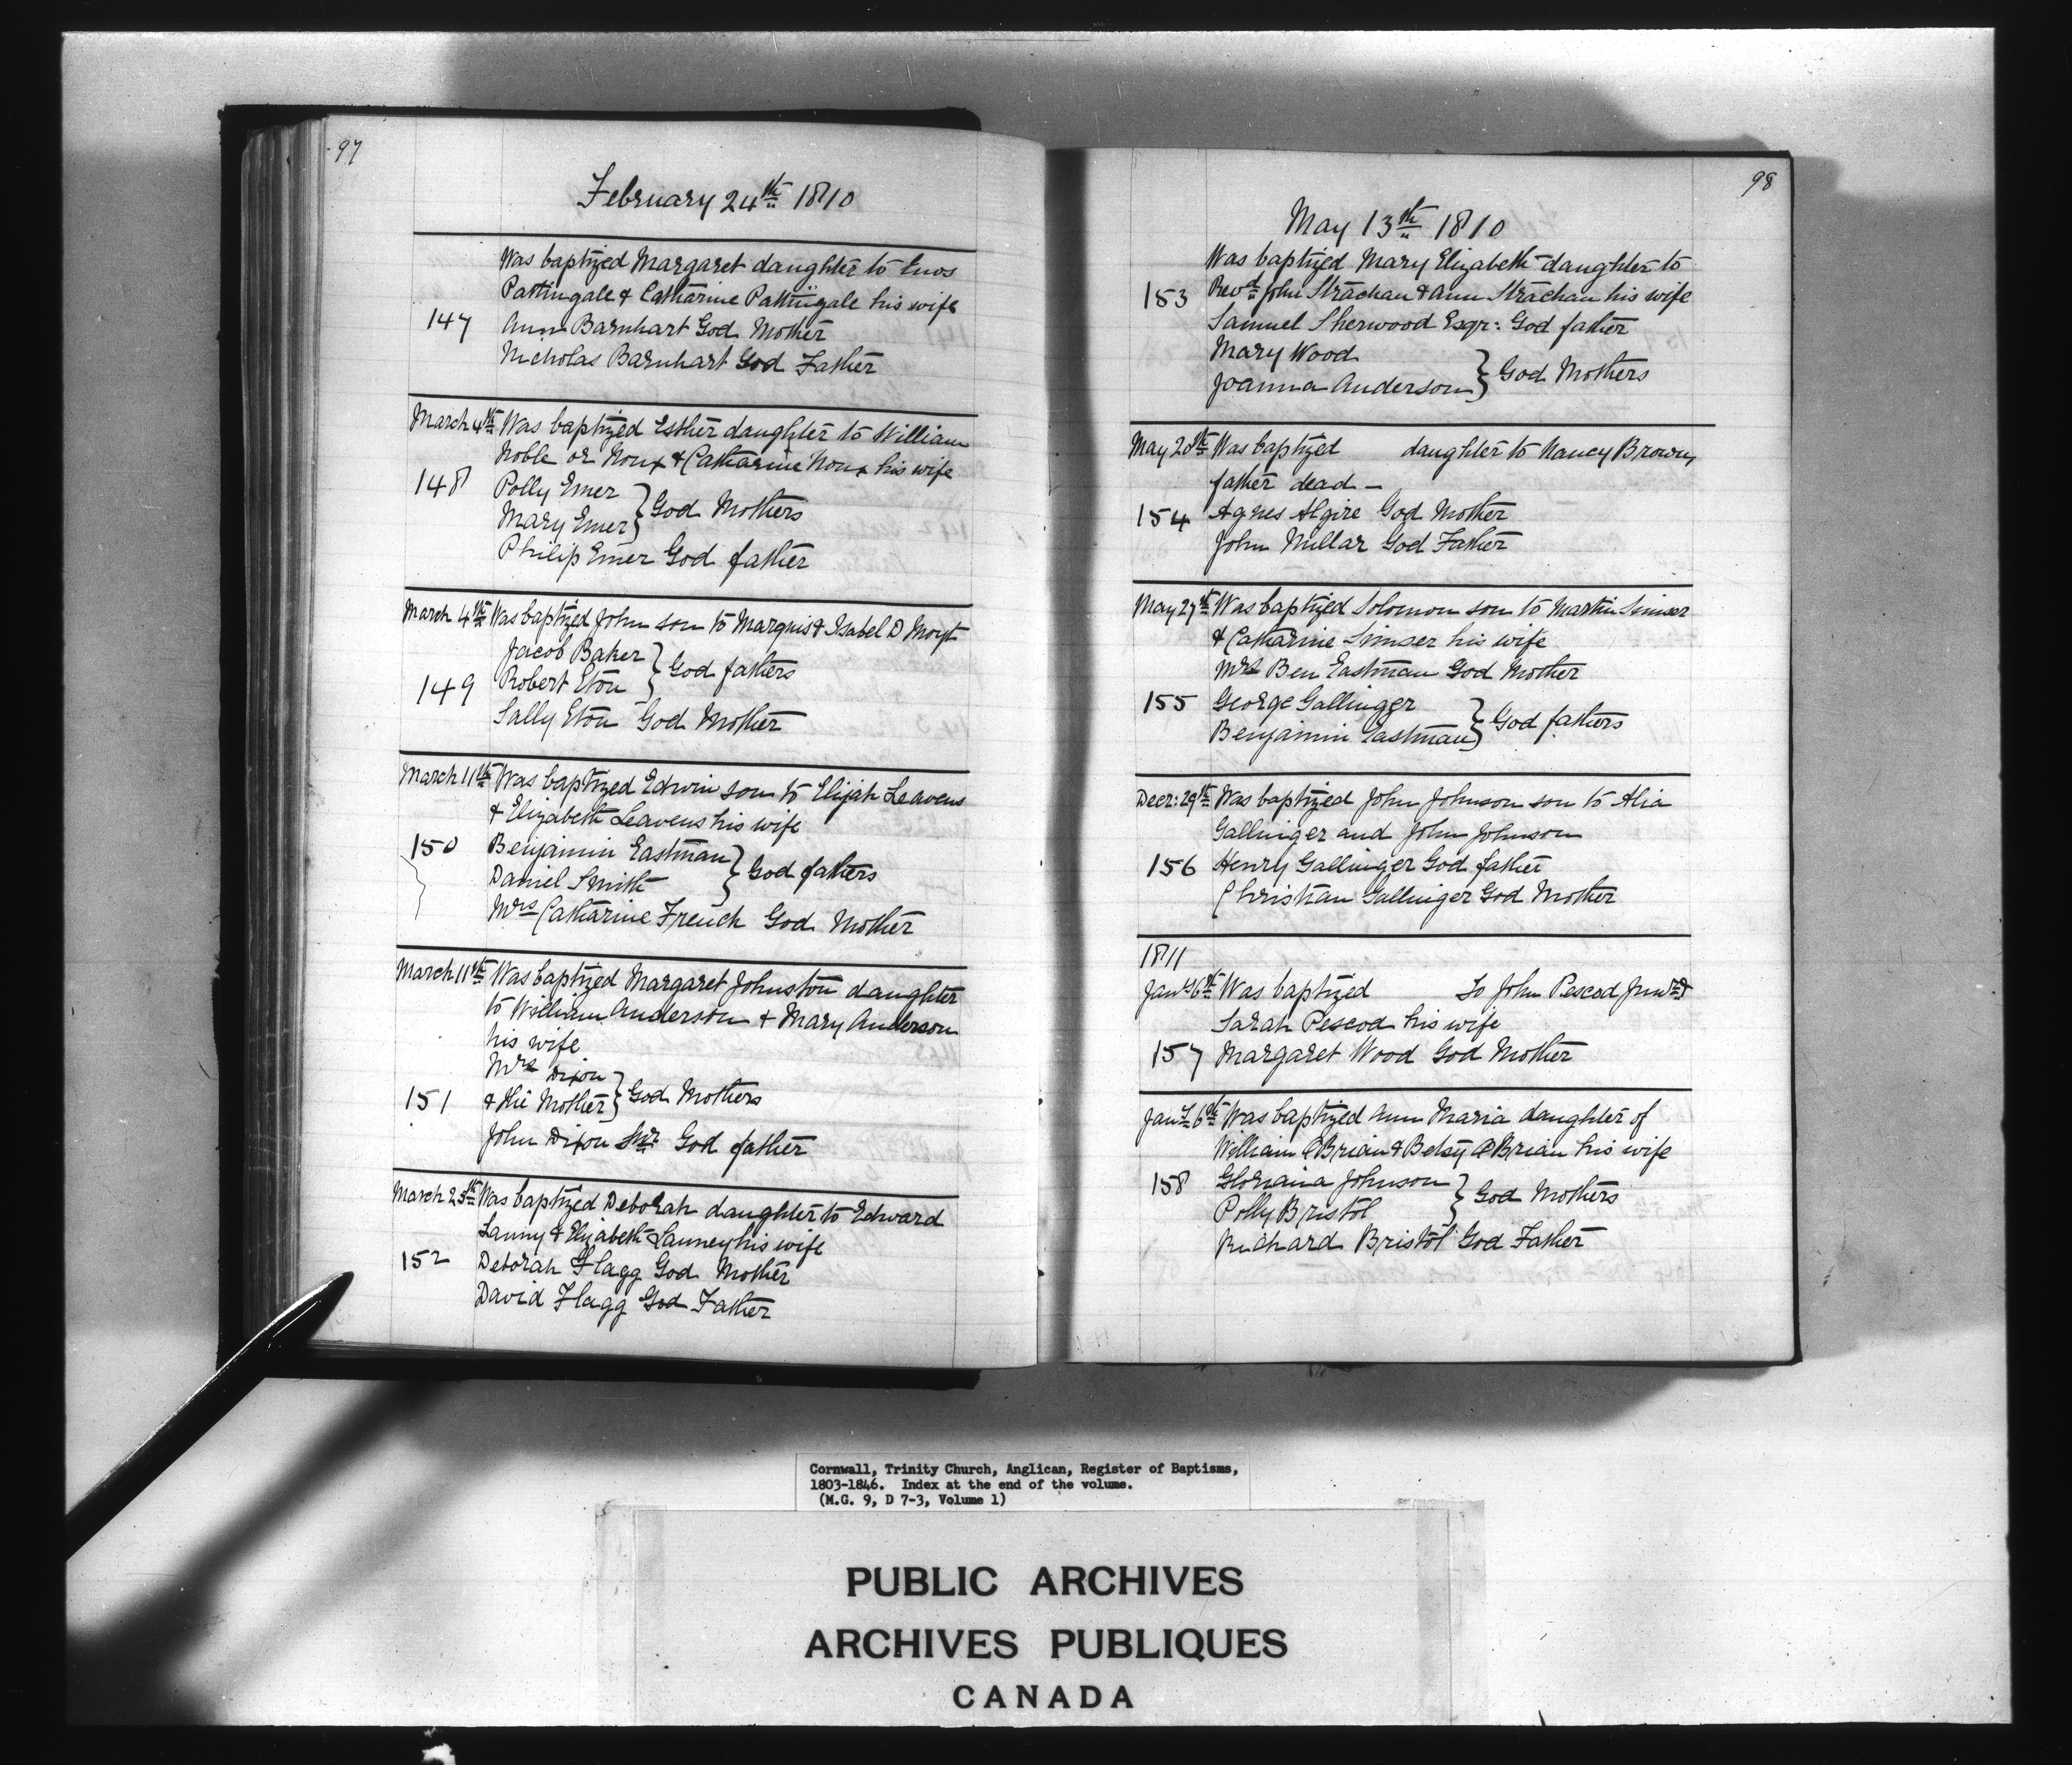 97
February 24th 1810
Was baptized Margaret daughter to Enos
Pattingale & Catharine Pattingale his wife
147 Ann Barnhart God Mother
Nicholas Barnhart God Father
March 4th Was baptized Esther daughter to William
Noble or Nonx & Catharine Nonx his wife
148 Polly Emer
Mary Emer } God Mothers
Philip Emer God father
March 4th Was baptized John son to Marquis & Isabel D Moyt
Jacob Baker
149 Robert Eton } God fathers
Sally Eton God Mother
March 11th Was baptized Edwin son to Elijah Leavens
& Elizabeth Leavens his wife
150 Benjamin Eastman
Daniel Smith } God fathers
Mrs Catharine French God Mother
March 11th Was baptized Margaret Johnston daughter
to William Anderson & Mary Anderson
his wife
Mrs Dixon
151 & the Mother } God Mothers
John Dixon Snr God father
March 25th Was baptized Deborah daughter to Edward
Lanny & Elizabeth Launey his wife
152 Deborah Flagg God Mother
David Flagg God Father
98
May 13th 1810
Was baptized Mary Elizabeth daughter to
153 Revd John Strachan & Ann Strachan his wife
Samuel Sherwood Esqr: God father
Mary Wood
Joanna Anderson } God Mothers
May 20th Was baptized daughter to Nancy Brown,
father dead —
154 Agnes Algire God Mother
John Millar God Father
May 27th Was baptized Solomon son to Martin Simser
& Catharine Simser his wife
Mrs Ben Eastman God Mother
155 George Gallinger
Benjamin Eastman } God fathers
Decr: 29th Was baptized John Johnson son to Alia
Gallinger and John Johnson
156 Henry Gallinger God father
Christian Gallinger God Mother
1811
Jany 6th Was baptized To John Pescod Junr &
Sarah Pescod his wife
157 Margaret Wood God Mother
Jany 6th Was baptized Ann Maria daughter of
William OBrian & Betsy OBrian his wife
158 Gloriana Johnson
Polly Bristol } God Mothers
Richard Bristol God Father
Cornwall, Trinity Church, Anglican, Register of Baptisms,
1803-1846. Index at the end of the volume.
(M.G. 9, D 7-3, Volume 1)
PUBLIC ARCHIVES
ARCHIVES PUBLIQUES
CANADA